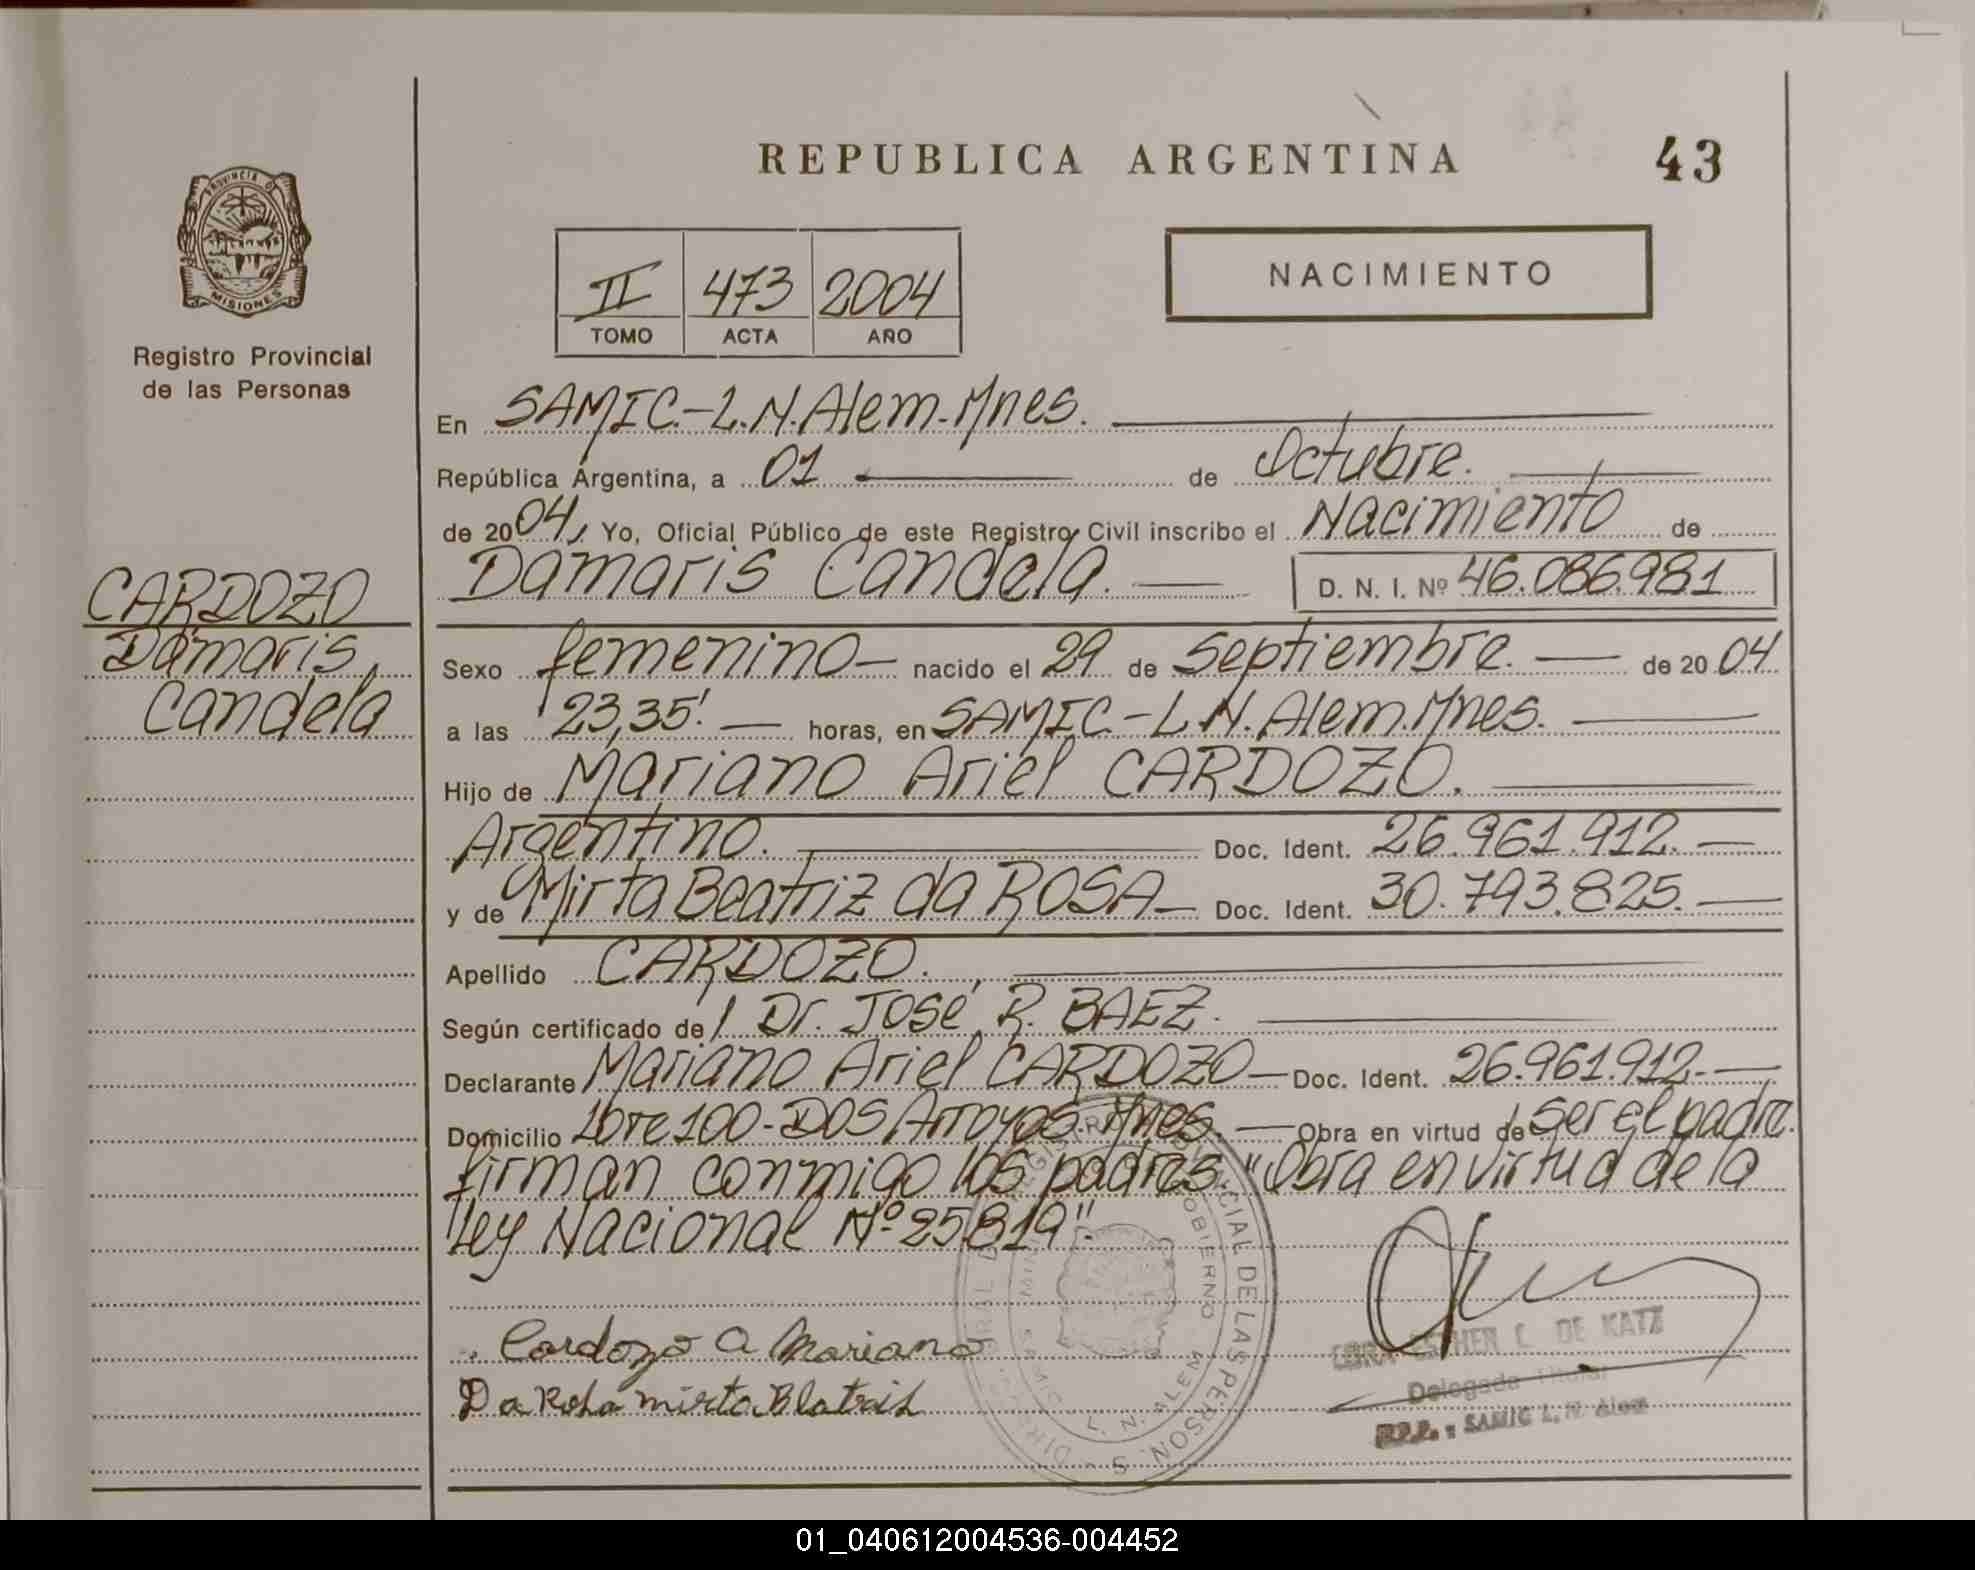 REPUBLICA ARGENTINA
43
PROVINCIA DE
MISIONES
Registro Provincial
de las Personas
II 473 2004
TOMO ACTA AÑO
NACIMIENTO
En SAMIC.-L.N.Alem.Mnes.
República Argentina, a 01 de Octubre.
de 2004, Yo, Oficial Público de este Registro Civil inscribo el Nacimiento de
Damaris Candela. D. N. I. Nº 46.086.981
CARDOZO
Damaris
Candela
Sexo femenino nacido el 29 de Septiembre. de 2004
a las 23,35'. horas, en SAMIC.-L.N.Alem.Mnes.
Hijo de Mariano Ariel CARDOZO.
Argentino. Doc. Ident. 26.961.912.
y de Mirta Beatriz da ROSA Doc. Ident. 30.793.825.
Apellido CARDOZO.
Según certificado de Dr. José R. BAEZ.
Declarante Mariano Ariel CARDOZO Doc. Ident. 26.961.912.
Domicilio Lote 100-DOS Arroyos. Mnes. Obra en virtud de ser el padre.
firman conmigo los padres. "Obra en virtud de la
Ley Nacional Nº 25819".
Cardozo A Mariano
Da Rosa mirta
ESTHER C. DE KATZ
Delegada Titular
R.P.P. : SAMIC L. N. Alem
REGISTRO PROVINCIAL DE LAS PERSON. S
GOBIERNO
L. N. ALEM
01_040612004536-004452